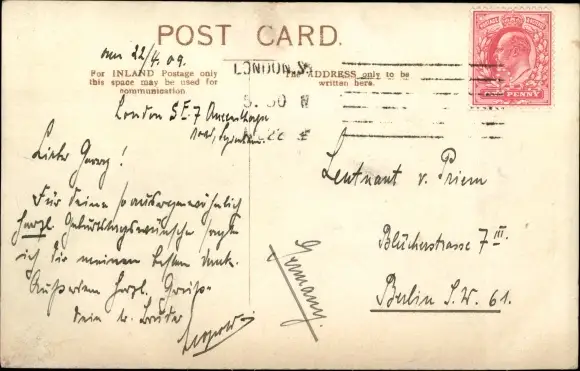 POST CARD.
22/4. 09.
For INLAND Postage only
this space may be used for
communication
The ADDRESS only to be
written here.
LONDON. S.
5. 30
22
PENNY
London S.E. 7
Lieber Georg!
Für deine so aussergewöhnlich
herzl. Geburtstagswünsche sagt
ich dir meinen besten Dank.
Außerdem herzl. Grüße
dein tr. Bruder
Leopold
Leutnant v. Priem
Blücherstrasse 7 III.
Berlin S.W. 61.
Germany.